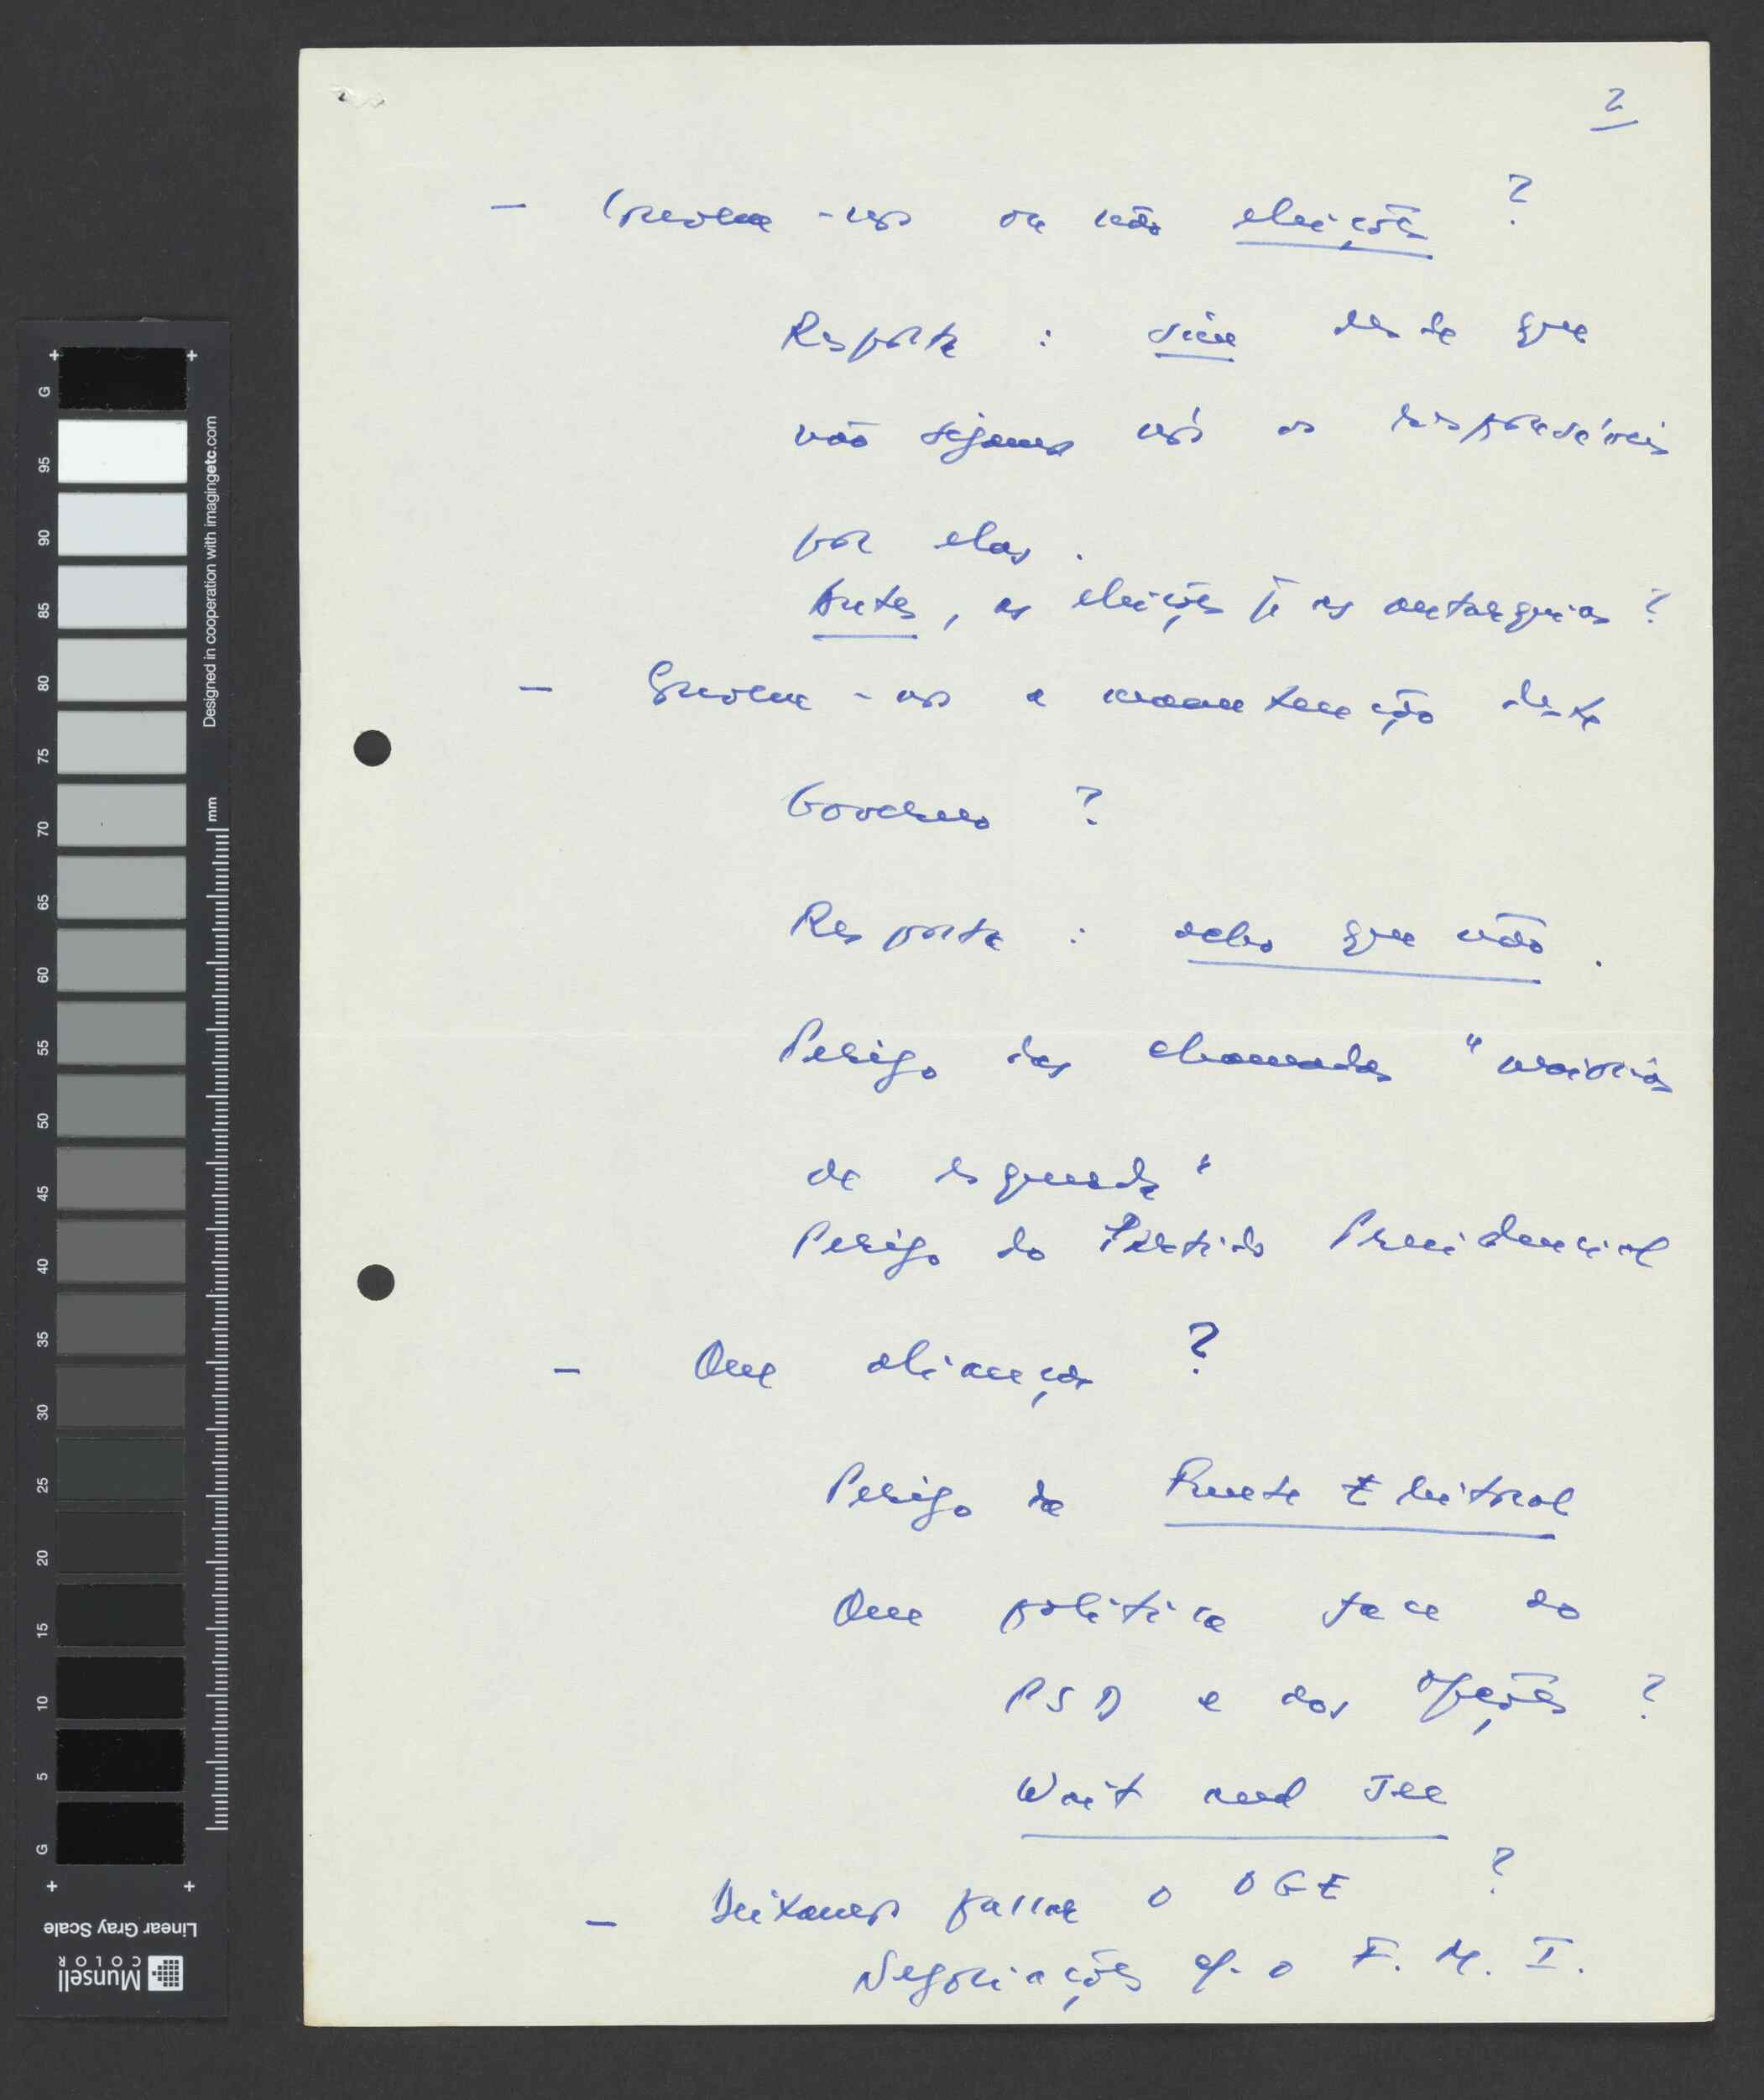 2
— Convém-nos ou não eleições ?
Resposta : sim desde que
não sejamos nós os responsáveis
por elas .
Antes , as eleições p.ª as autarquias ?
— Convém-nos a manutenção deste
Governo ?
Resposta : acho que não .
Perigo das chamadas "maiorias
de esquerda"
Perigo do Partido Presidencial
— Que alianças ?
Perigo da Frente Eleitoral
Que política face ao
PSD e aos opções ?
Wait and See
— Deixamos passar o OGE ?
Negociações c/. o F. M. I.
G
95
90
85
80
75
70
65
60
55
50
45
40
35
30
25
20
15
10
5
G
Designed in cooperation with imagingetc.com
mm
Linear Gray Scale
Munsell
COLOR